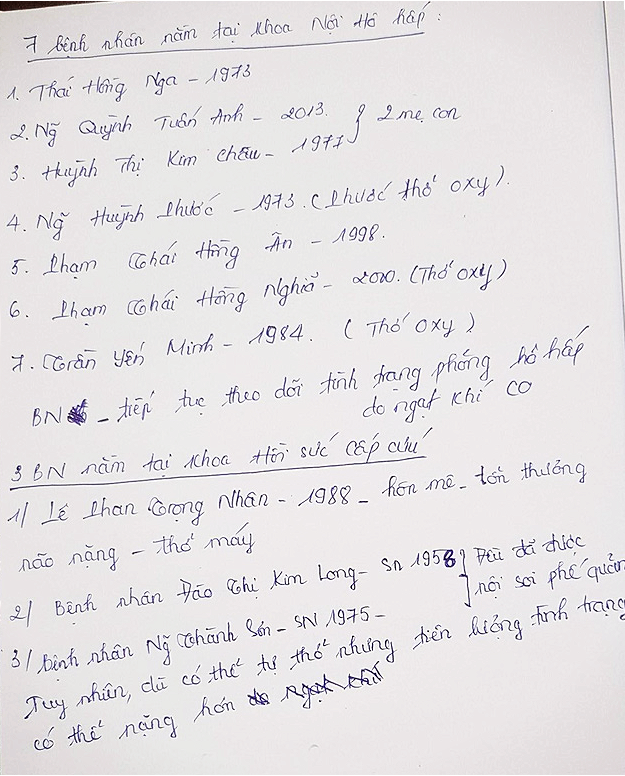 7 bệnh nhân nằm tại khoa Nội Hô hấp:
1. Thái Hồng Nga - 1973
2. Ng̃ Quỳnh Tuấn Anh - 2013. } 2 mẹ con
3. Huỳnh Thị Kim Châu - 1977
4. Ng̃ Huỳnh Phước - 1973. (Phước thở oxy).
5. Phạm Thái Hồng Ân - 1998.
6. Phạm Thái Hồng Nghĩa - 2000. (Thở oxy)
7. Trần Yến Minh - 1984. (Thở oxy)
BN - tiếp tục theo dõi tình trạng phỏng hô hấp
do ngạt khí CO
3 BN nằm tại khoa Hồi sức cấp cứu
1/ Lê Phan Trọng Nhân - 1988 - hôn mê - tổn thương
não nặng - thở máy
2/ Bệnh nhân Đào Thị Kim Long - SN 1958 } Đều đã được
nội soi phế quản
3/ Bệnh nhân Ng̃ Thành Sơn - SN 1975 -
Tuy nhiên, dù có thể tự thở nhưng tiên lượng tình trạng
có thể nặng hơn